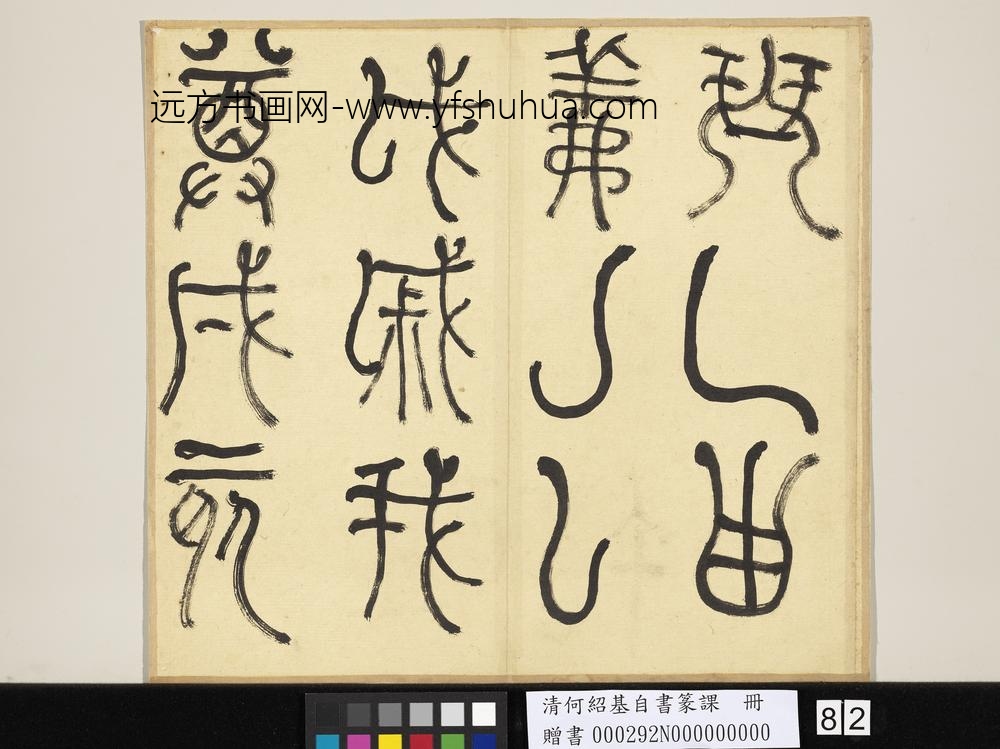 珡乚甾
羛亅𠄌
戉戚我
尊戌亥
远方书画网-www.yfshuhua.com
清何紹基自書篆課 冊
贈書 000292N000000000
82